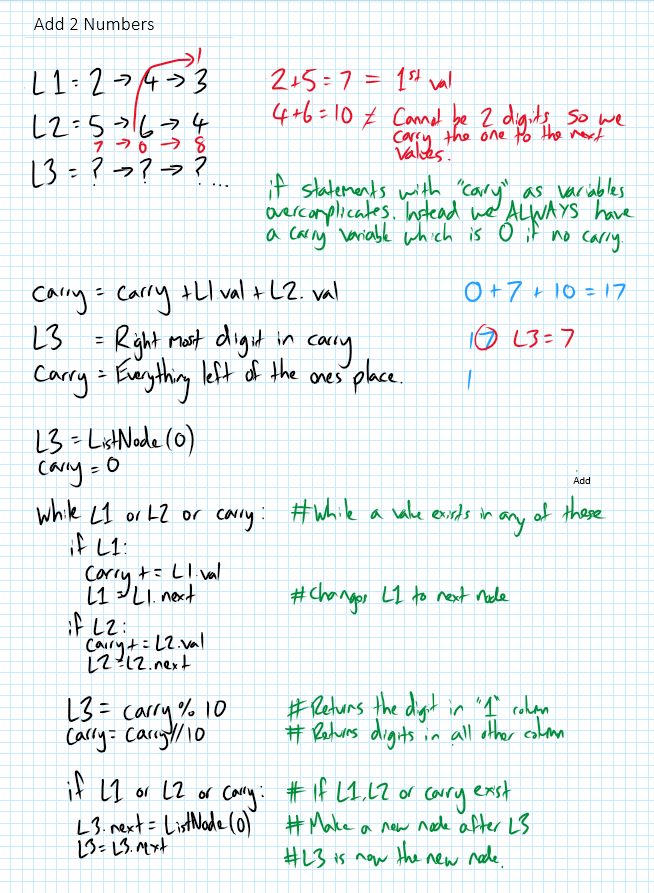 Add 2 Numbers
1
L1 = 2 → 4 → 3
2+5=7 = 1st val
L2 = 5 → 6 → 4
4+6=10 ≠ Cannot be 2 digits, so we
carry the one to the next
values.
7 → 0 → 8
L3 = ? → ? → ? ...
if statements with "carry" as variables
overcomplicates. Instead we ALWAYS have
a carry variable which is 0 if no carry.
carry = carry + L1 val + L2. val
0+7+10=17
L3 = Right most digit in carry
17 L3=7
Carry = Everything left of the ones place.
1
L3 = ListNode(0)
carry = 0
Add
while L1 or L2 or carry: #While a value exists in any of these
if L1:
carry += L1.val
L1 = L1.next #Changes L1 to next node
if L2:
carry += L2.val
L2 = L2.next
L3 = carry % 10 # Returns the digit in "1" column
Carry = Carry//10 # Returns digits in all other column
if L1 or L2 or carry: # if L1, L2 or carry exist
L3.next = ListNode(0) # Make a new node after L3
L3 = L3.next #L3 is now the new node.